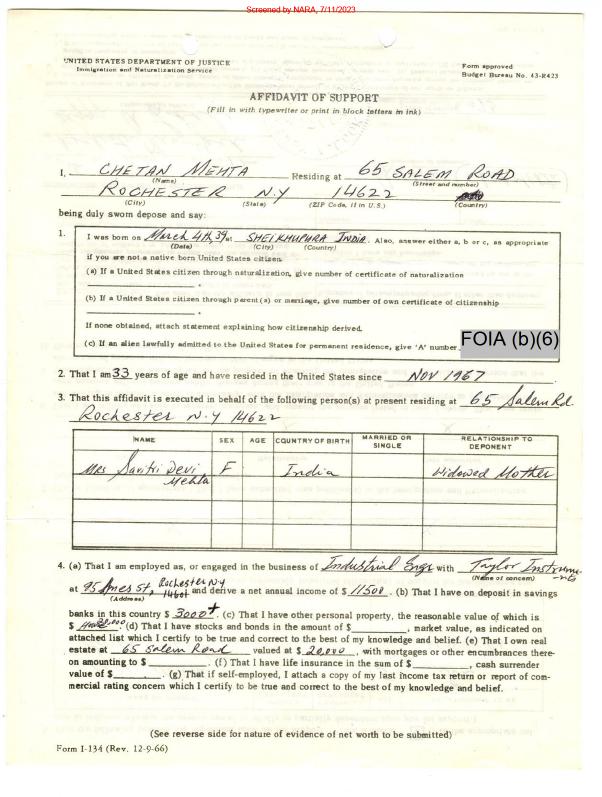 Screened by NARA, 7/11/2023
UNITED STATES DEPARTMENT OF JUSTICE
Immigration and Naturalization Service
Form approved
Budget Bureau No. 43-R423
AFFIDAVIT OF SUPPORT
(Fill in with typewriter or print in block letters in ink)
I, CHETAN MEHTA Residing at 65 SALEM ROAD
(Name) (Street and number)
ROCHESTER N.Y 14622
(City) (State) (ZIP Code, if in U.S.) (Country)
being duly sworn depose and say:
1. I was born on March 4th, 39 at SHEIKHUPURA INDIA. Also, answer either a, b or c, as appropriate
(Date) (City) (Country)
if you are not a native born United States citizen.
(a) If a United States citizen through naturalization, give number of certificate of naturalization
.
(b) If a United States citizen through parent(s) or marriage, give number of own certificate of citizenship
.
If none obtained, attach statement explaining how citizenship derived.
(c) If an alien lawfully admitted to the United States for permanent residence, give 'A' number. FOIA (b)(6)
2. That I am 33 years of age and have resided in the United States since NOV 1967
3. That this affidavit is executed in behalf of the following person(s) at present residing at 65 Salem Rd.
Rochester N.Y 14622
NAME SEX AGE COUNTRY OF BIRTH MARRIED OR SINGLE RELATIONSHIP TO DEPONENT
Mrs Savitri Devi Mehta F India Widowed Mother
4. (a) That I am employed as, or engaged in the business of Industrial Engr with Taylor Instruments
(Name of concern)
at 95 Ames St, Rochester N.Y and derive a net annual income of $ 11500. (b) That I have on deposit in savings
(Address)
banks in this country $ 3000+ (c) That I have other personal property, the reasonable value of which is
$ . (d) That I have stocks and bonds in the amount of $ , market value, as indicated on
attached list which I certify to be true and correct to the best of my knowledge and belief. (e) That I own real
estate at 65 Salem Road valued at $ 20,000, with mortgages or other encumbrances there-
on amounting to $ . (f) That I have life insurance in the sum of $ , cash surrender
value of $ . (g) That if self-employed, I attach a copy of my last income tax return or report of com-
mercial rating concern which I certify to be true and correct to the best of my knowledge and belief.
(See reverse side for nature of evidence of net worth to be submitted)
Form I-134 (Rev. 12-9-66)